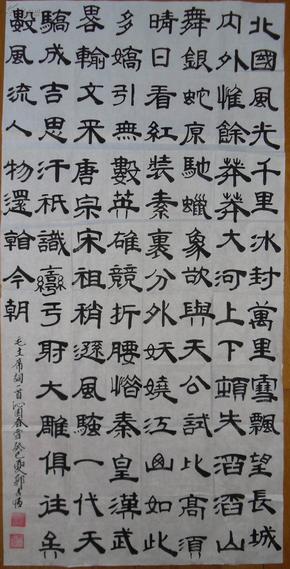 北國風光千里冰封萬里雪飄望長城
内外惟餘莽莽大河上下頓失滔滔山
舞銀蛇原馳蠟象欲與天公試比高須
晴日看紅裝素裹分外妖嬈江山如此
多嬌引無數英雄競折腰惜秦皇漢武
畧輸文采唐宗宋祖稍遜風騷一代天
驕成吉思汗祇識彎弓射大雕俱往矣
數風流人物還看今朝
毛主席詞一首沁園春雪癸巳夏郭